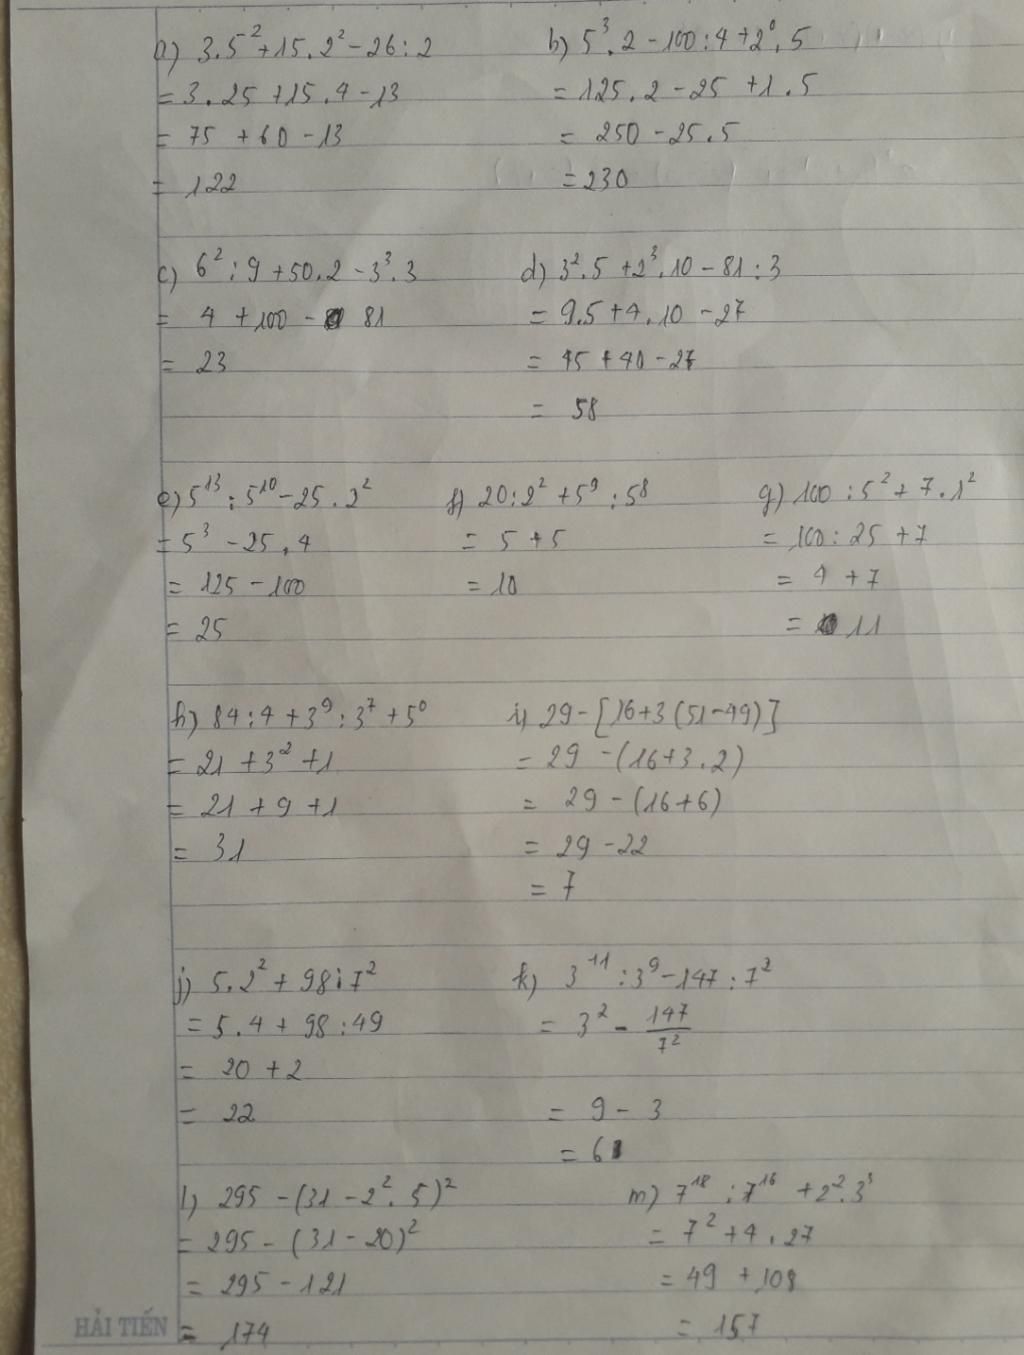 a) 3.5² + 15.2² - 26 : 2
= 3.25 + 15.4 - 13
= 75 + 60 - 13
= 122
b) 5³.2 - 100 : 4 + 2⁰.5
= 125.2 - 25 + 1.5
= 250 - 25.5
= 230
c) 6² : 9 + 50.2 - 3³.3
= 4 + 100 - 81
= 23
d) 3².5 + 2³.10 - 81 : 3
= 9.5 + 4.10 - 27
= 45 + 40 - 27
= 58
e) 5¹³ : 5¹⁰ - 25.2²
= 5³ - 25.4
= 125 - 100
= 25
f) 20 : 2² + 5⁹ : 5⁸
= 5 + 5
= 10
g) 100 : 5² + 7.1²
= 100 : 25 + 7
= 4 + 7
= 11
h) 84 : 4 + 3⁹ : 3⁷ + 5⁰
= 21 + 3² + 1
= 21 + 9 + 1
= 31
i) 29 - [16 + 3(51 - 49)]
= 29 - (16 + 3.2)
= 29 - (16 + 6)
= 29 - 22
= 7
j) 5.2² + 98 : 7²
= 5.4 + 98 : 49
= 20 + 2
= 22
k) 3¹¹ : 3⁹ - 147 : 7²
= 3² - 147/7²
= 9 - 3
= 6
l) 295 - (31 - 2².5)²
= 295 - (31 - 20)²
= 295 - 121
= 174
m) 7¹⁸ : 7¹⁶ + 2².3³
= 7² + 4.27
= 49 + 108
= 157
HẢI TIẾN